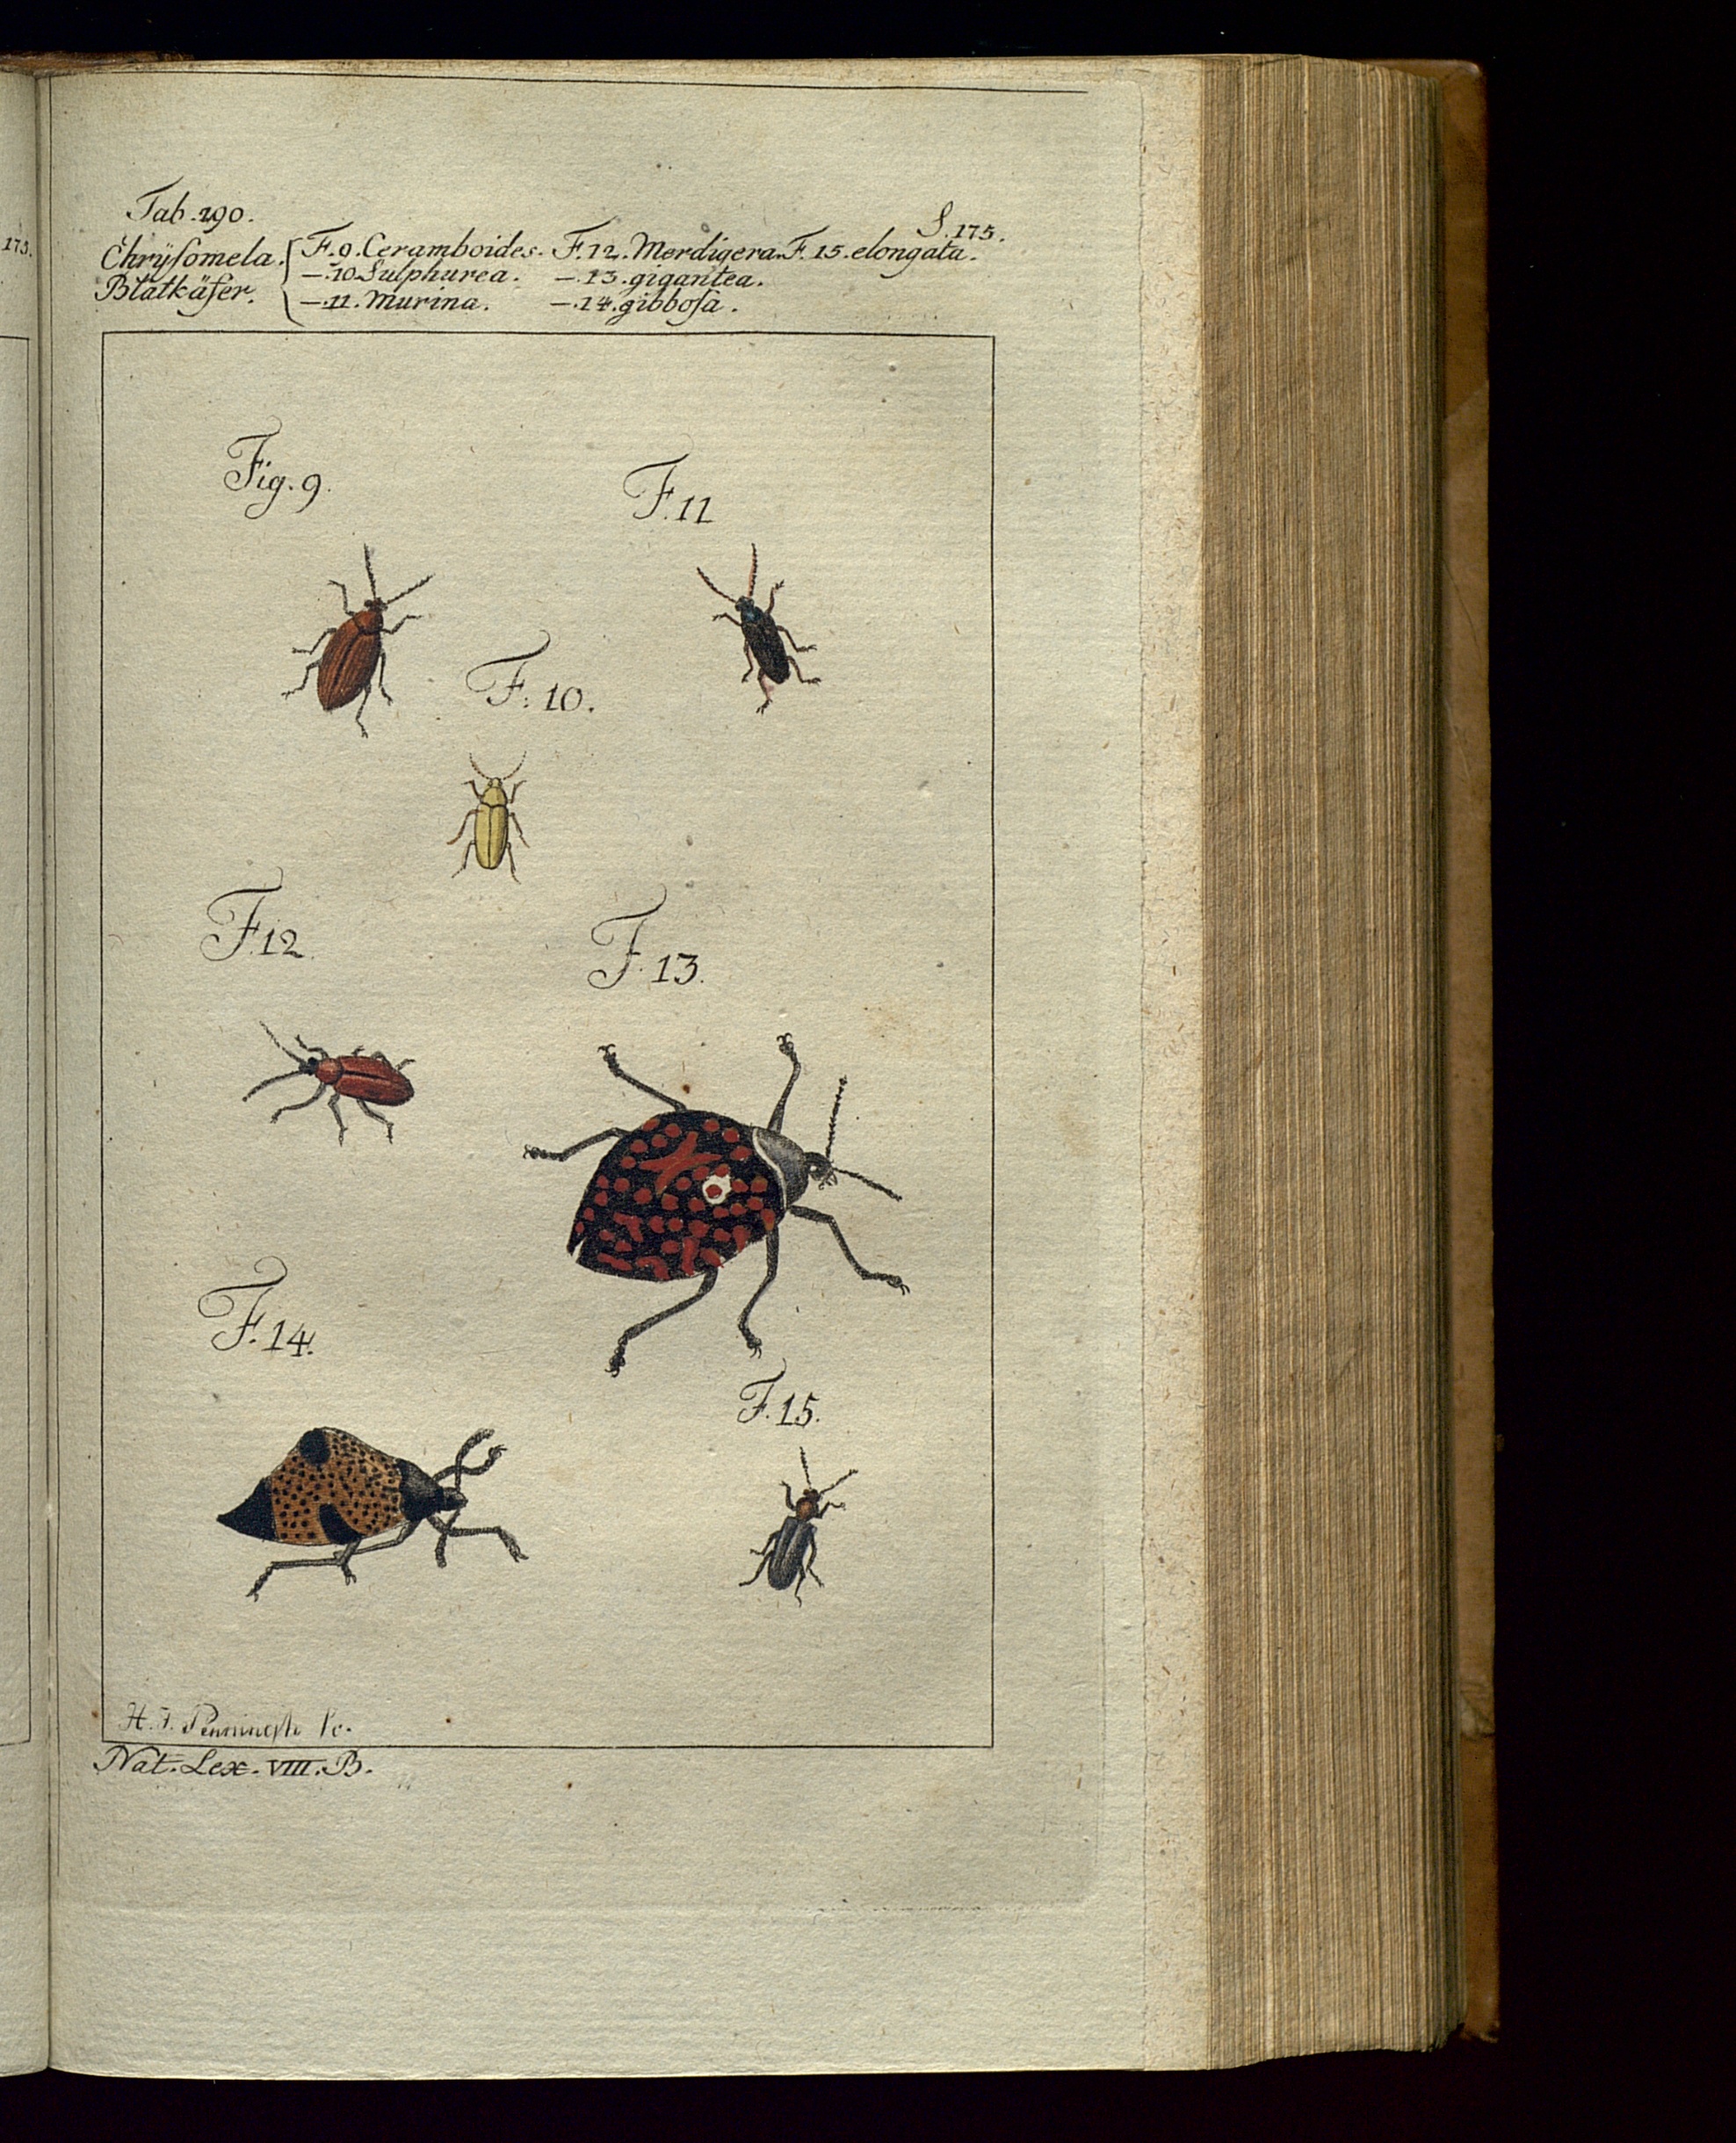 175.
Tab. 290.
S. 175.
Chrÿsomela. F. 9. Ceramboides. F. 12. Merdigera. F. 15. elongata.
Blatkäfer. — 10 Sulphurea. — 13. gigantea.
— 11. Murina. — 14. gibbosa.
Fig. 9.
F. 11
F. 10.
F. 12.
F. 13.
F. 14.
F. 15.
H. J. sc.
Nat. Lex. VIII. B.